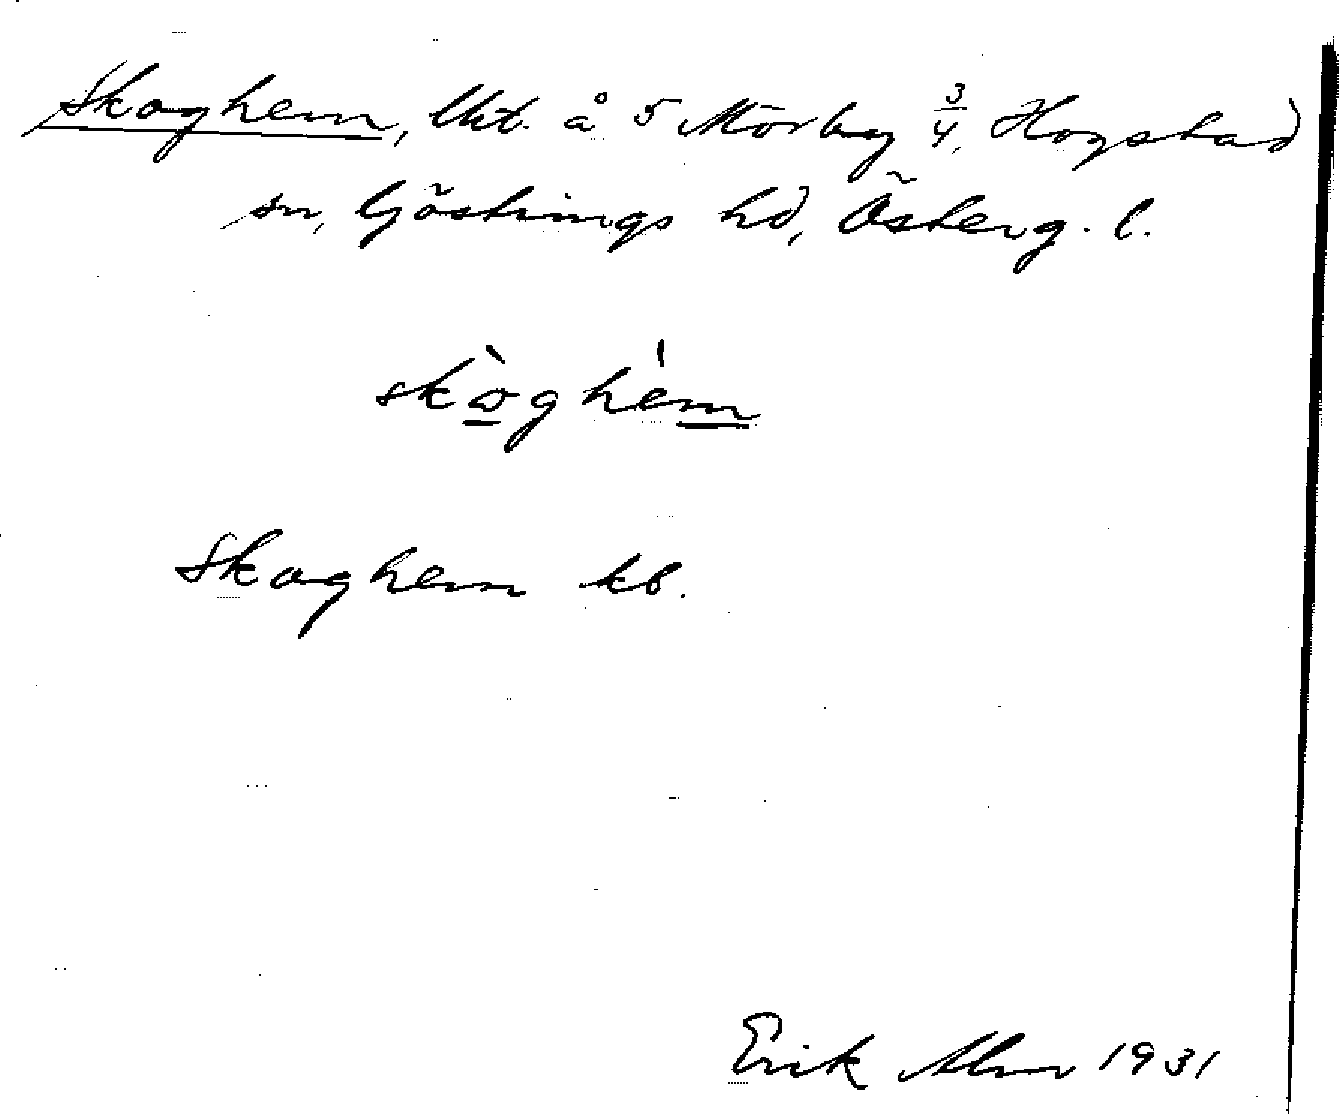 Skoghem, lht. å 5 Mörby 3/4, Hogstad
sn, Göstrings hd, Österg. l.
skòghém
Skoghem kb.
Erik Alm 1931